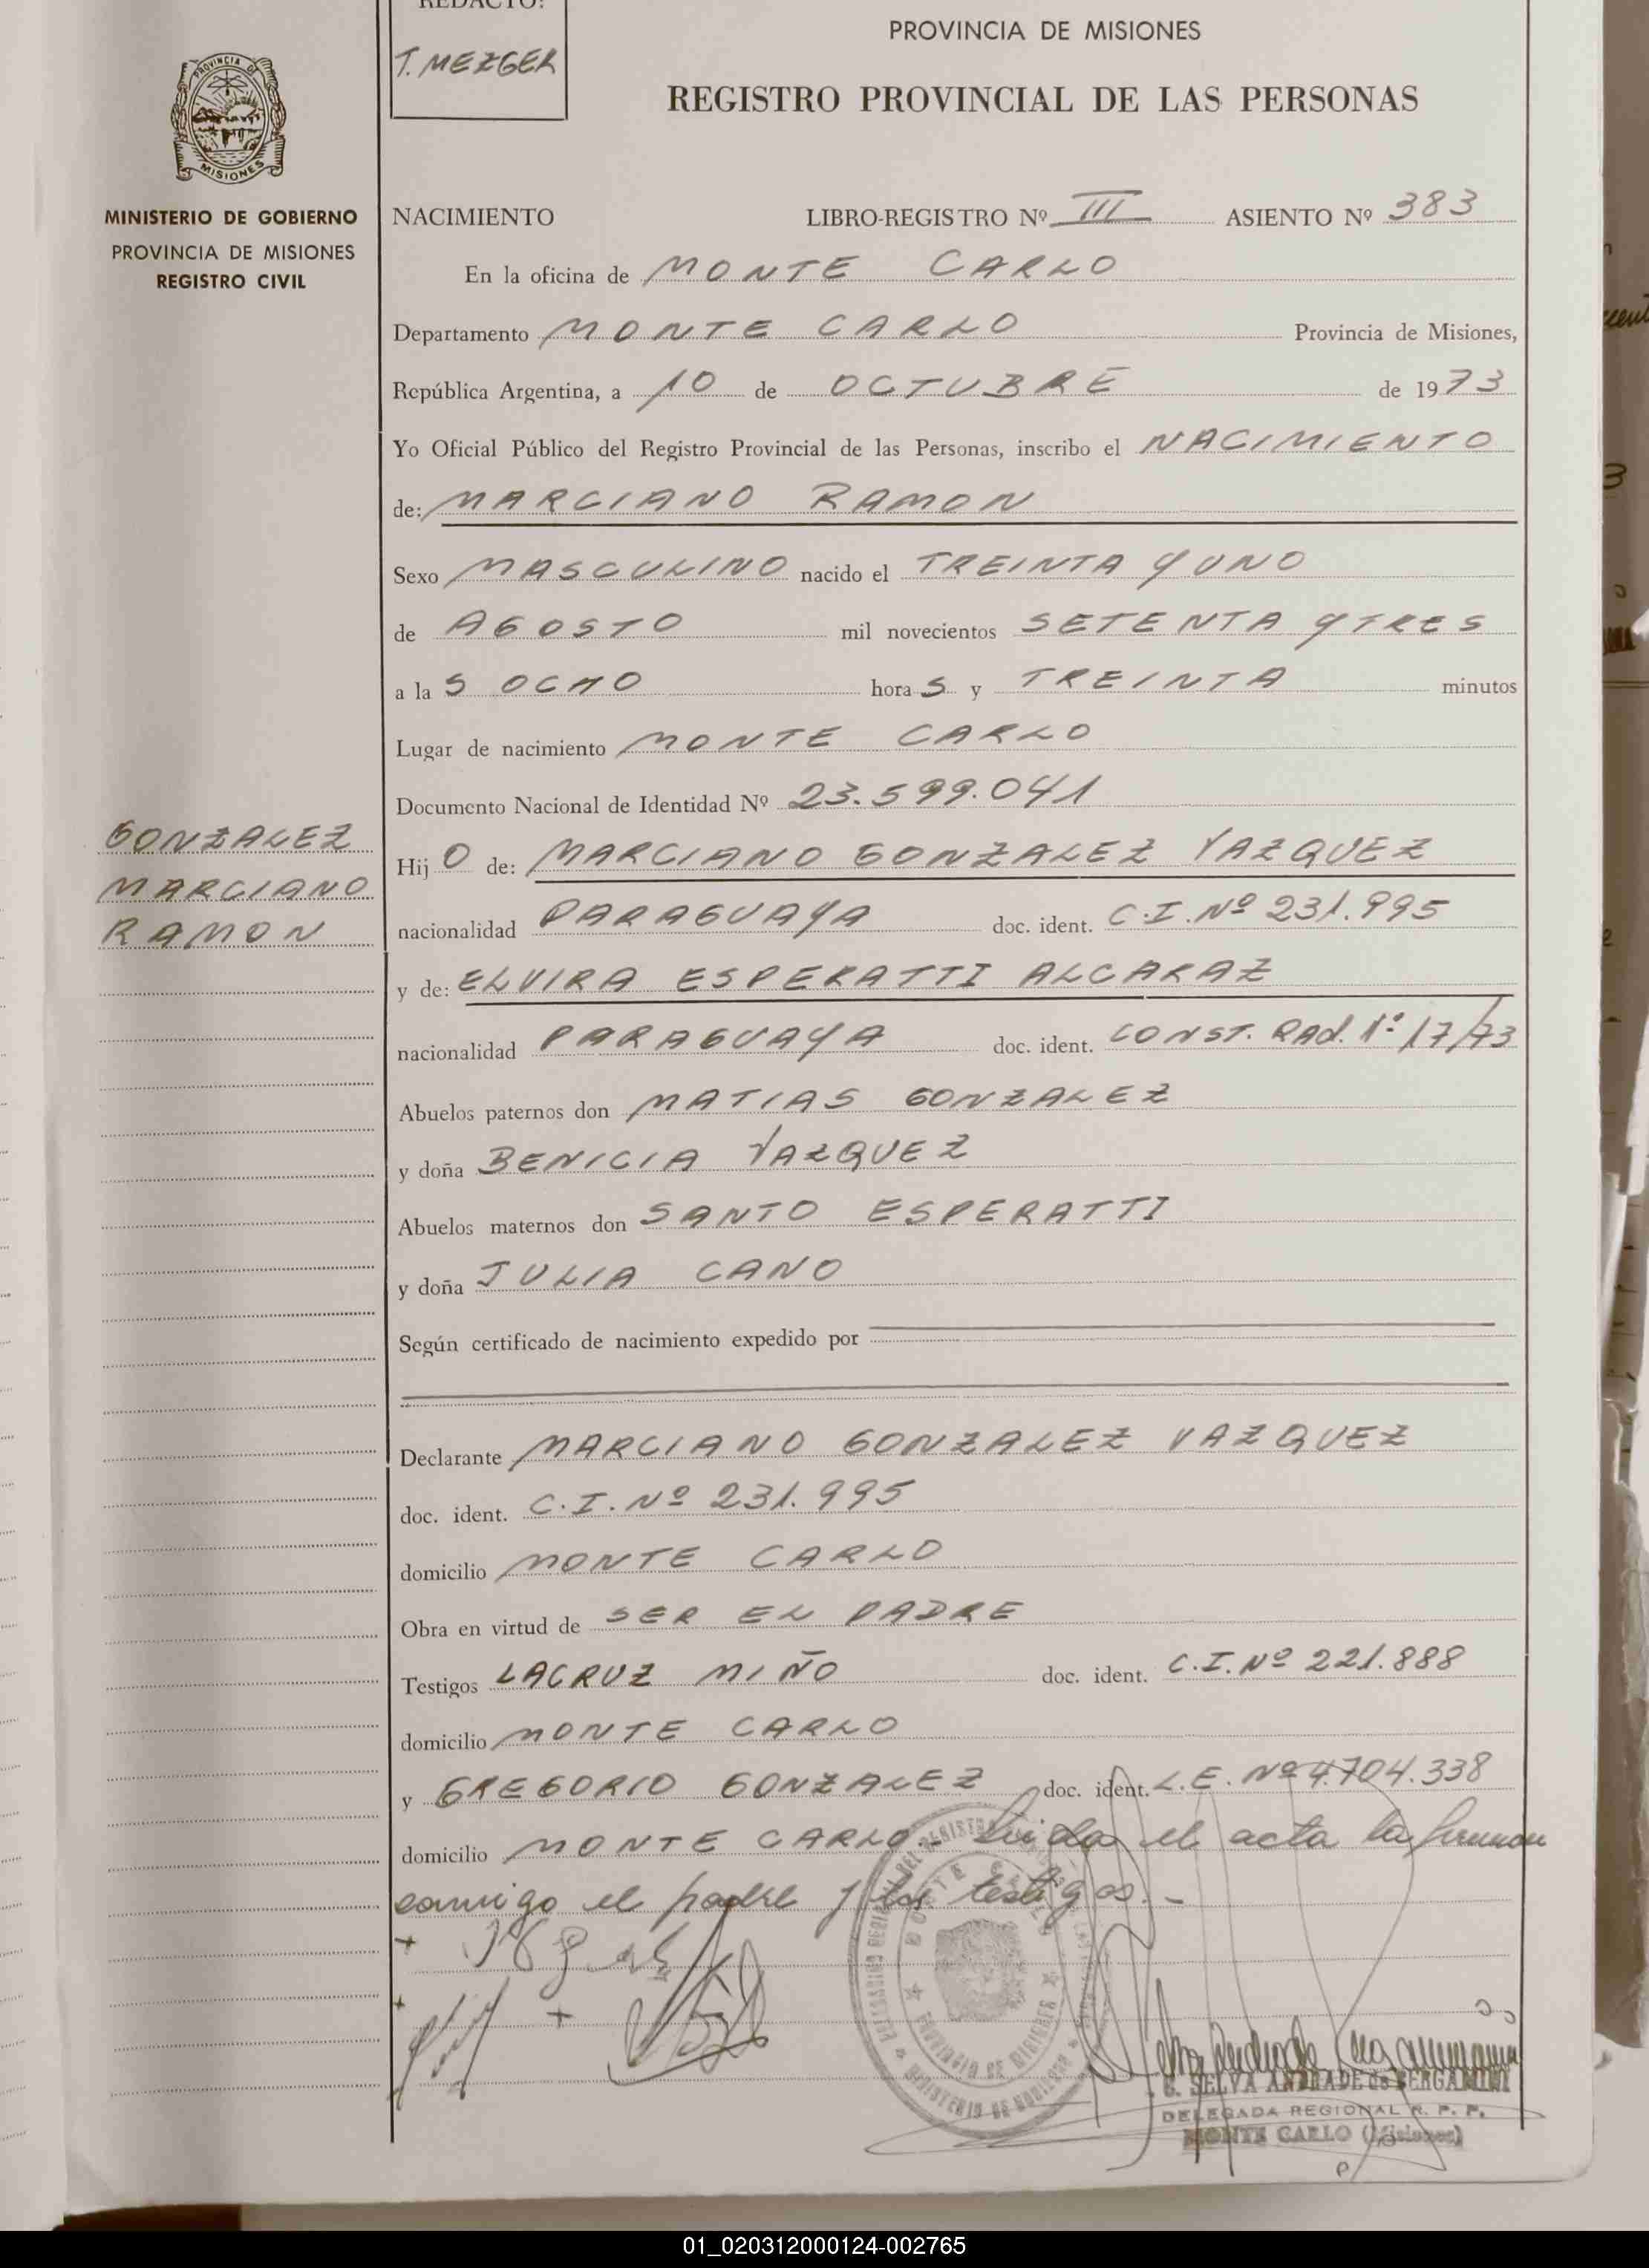 REDACTO:
T. MEZGER
PROVINCIA DE MISIONES
REGISTRO PROVINCIAL DE LAS PERSONAS
PROVINCIA DE
MISIONES
MINISTERIO DE GOBIERNO
PROVINCIA DE MISIONES
REGISTRO CIVIL
NACIMIENTO LIBRO-REGISTRO Nº III ASIENTO Nº 383
En la oficina de MONTE CARLO
Departamento MONTE CARLO Provincia de Misiones,
República Argentina, a 10 de OCTUBRE de 1973
Yo Oficial Público del Registro Provincial de las Personas, inscribo el NACIMIENTO
de: MARCIANO RAMON
Sexo MASCULINO nacido el TREINTA Y UNO
de AGOSTO mil novecientos SETENTA Y TRES
a la S OCHO hora S y TREINTA minutos
Lugar de nacimiento MONTE CARLO
Documento Nacional de Identidad Nº 23.599.041
GONZALEZ
MARCIANO
RAMON
Hij O de: MARCIANO GONZALEZ VAZQUEZ
nacionalidad PARAGUAYA doc. ident. C.I. Nº 231.995
y de: ELVIRA ESPERATTI ALCARAZ
nacionalidad PARAGUAYA doc. ident. CONST. RAd. 1º 17/73
Abuelos paternos don MATIAS GONZALEZ
y doña BENICIA VAZQUEZ
Abuelos maternos don SANTO ESPERATTI
y doña JULIA CANO
Según certificado de nacimiento expedido por
Declarante MARCIANO GONZALEZ VAZQUEZ
doc. ident. C.I. Nº 231.995
domicilio MONTE CARLO
Obra en virtud de SER EL PADRE
Testigos LACRUZ MIÑO doc. ident. C.I. Nº 221.888
domicilio MONTE CARLO
y GREGORIO GONZALEZ doc. ident. L.E. Nº 4.704.338
domicilio MONTE CARLO.- Leida el acta la firman
conmigo el padre y los testigos.-
S. SELVA ANDRADE de BERGAMINI
DELEGADA REGIONAL R. P. P.
MONTE CARLO (Misiones)
01_020312000124-002765